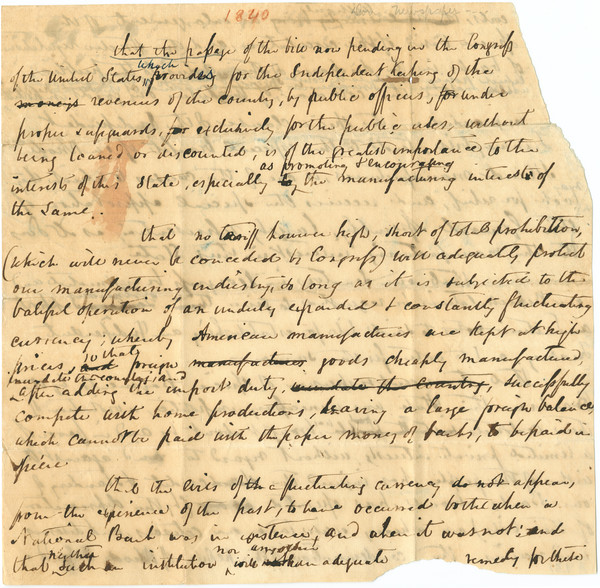 1840
that the passage of the bill now pending in the Congress
which
of the United States, provides, for the Independent keeping of the
moneys revenues of the country, by public officers, for under
proper safeguards, for exclusively for the public uses, without
being loaned or discounted, is of the greatest importance to the
as promoting & encouraging
interests of this State, especially to the manufacturing interests of
the Same.
that no tariff however high, short of total prohibition,
(which will never be conceded by Congress) will adequately protect
our manufacturing industry, so long as it is subjected to the
baleful operation of an unduly expanded & constantly fluctuating
currency; whereby American manufactures are kept at high
so that
prices, and foreign manufactures goods cheaply manufactured,
inundate the country; and
after adding the import duty, inundate the country, successfully
compete with home productions, leaving a large foreign balance,
which cannot be paid with the paper money of banks, to be paid in
specie
that the evils of the fluctuating currency do not appear,
from the experience of the past, to have occurred both when a
National Bank was in existence, and when it was not: and
neither nor any other
that such an institution is an adequate remedy for these